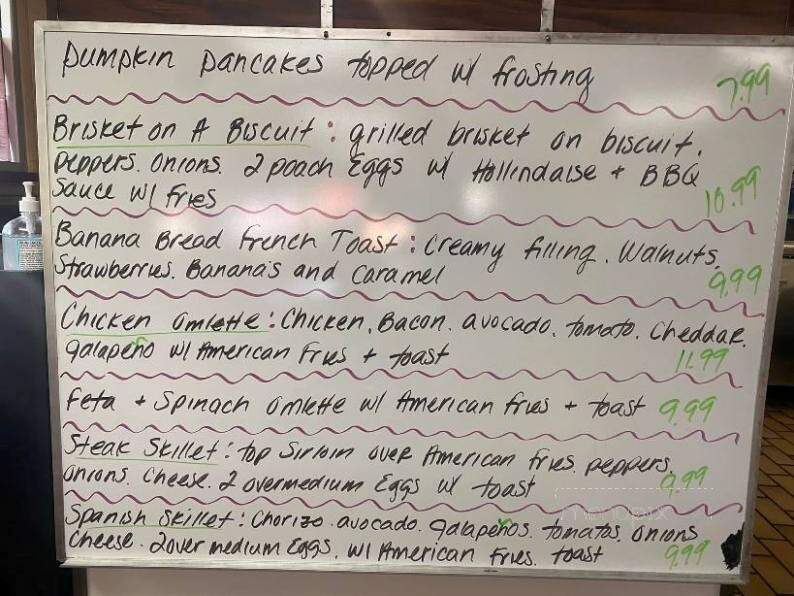 pumpkin pancakes topped w/ frosting 7.99
Brisket on A Biscuit : grilled brisket on biscuit.
peppers. Onions. 2 poach Eggs w/ Hollindaise + BBQ
Sauce w/ fries 10.99
Banana Bread french Toast : Creamy filling. Walnuts.
Strawberries. Banana's and Caramel 9.99
Chicken omlette : Chicken, Bacon. avocado. tomato. Cheddar.
jalapeño w/ American fries + toast 11.99
feta + Spinach omlette w/ American fries + toast 9.99
Steak Skillet : top Sirloin over American fries. peppers.
onions. cheese. 2 overmedium Eggs w/ toast 9.99
Spanish Skillet : Chorizo. avocado. jalapeños. tomatos. onions
Cheese. 2 over medium Eggs. w/ American fries. toast 9.99
menupix